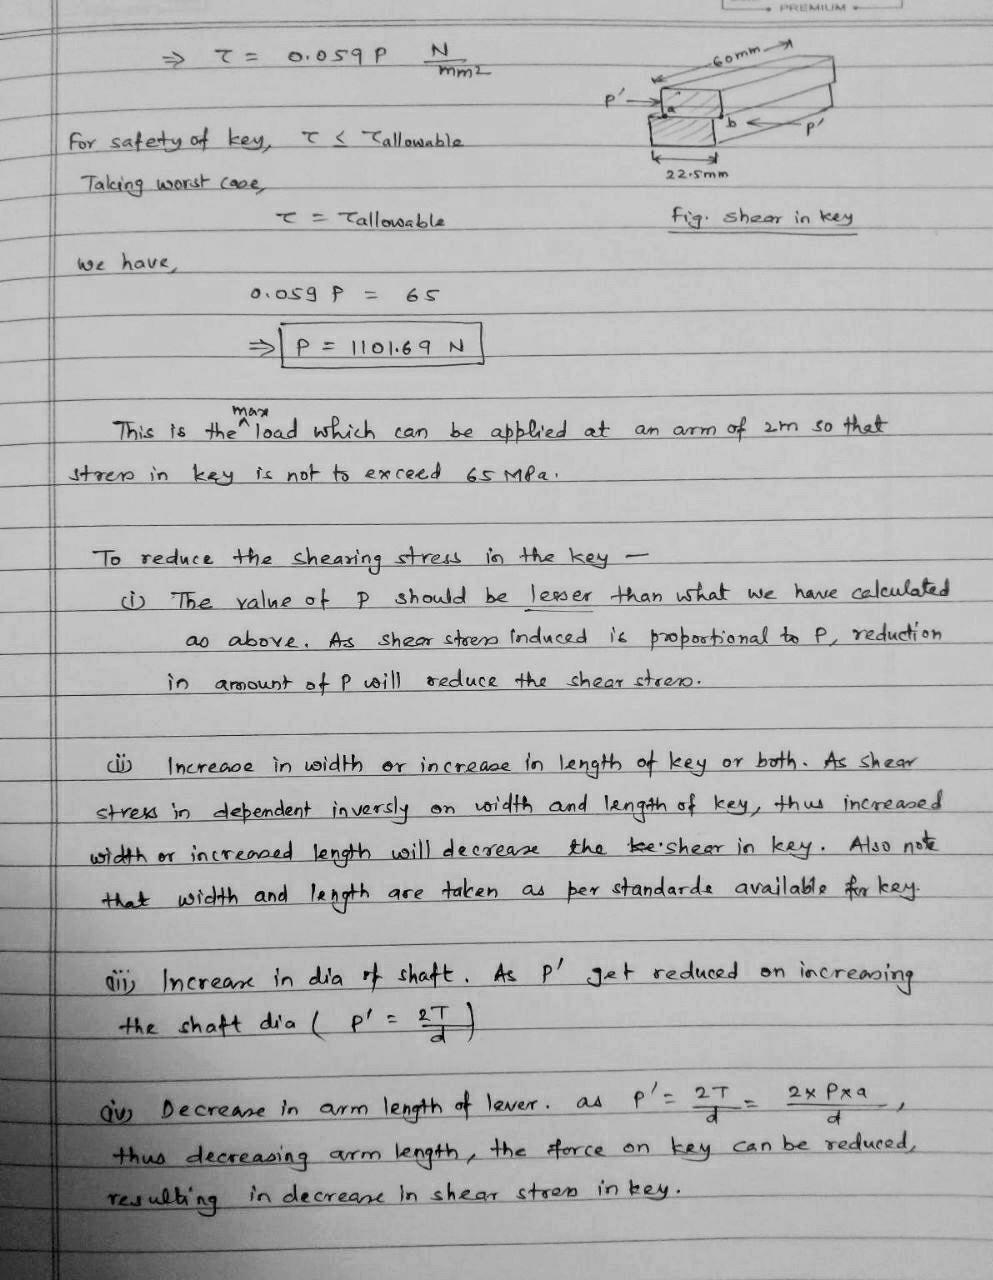 PREMIUM
⇒ τ = 0.059 P N/mm2
60mm
P'
a
b
P'
22.5mm
Fig. shear in key
For safety of key, τ ≤ τallowable
Taking worst case,
τ = τallowable
we have,
0.059 P = 65
⇒ P = 1101.69 N
max
This is the ^ load which can be applied at an arm of 2m so that
stress in key is not to exceed 65 MPa.
To reduce the shearing stress in the key —
(i) The value of P should be lesser than what we have calculated
as above. As shear stress induced is proportional to P, reduction
in amount of P will reduce the shear stress.
(ii) Increase in width or increase in length of key or both. As shear
stress in dependent inversly on width and length of key, thus increased
width or increased length will decrease the shear in key. Also note
that width and length are taken as per standards available for key.
(iii) Increase in dia of shaft. As P' get reduced on increasing
the shaft dia ( P' = 2T/d )
(iv) Decrease in arm length of lever. as P' = 2T/d = 2×P×a/d ,
thus decreasing arm length, the force on key can be reduced,
resulting in decrease in shear stress in key.